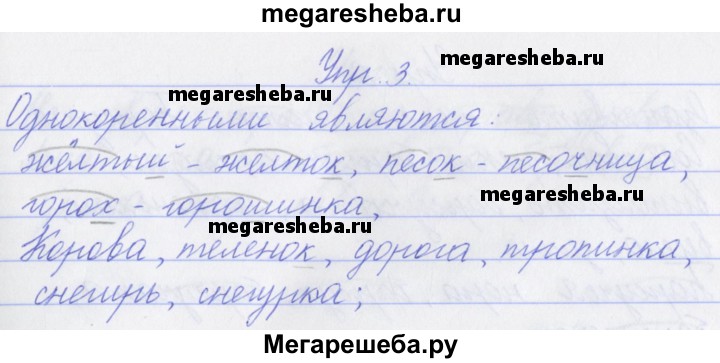 megaresheba.ru
Упр. 3.
megaresheba.ru
megaresheba.ru
Однокоренными являются:
жёлтый - желток, песок - песочница,
megaresheba.ru
горох - горошинка,
megaresheba.ru
Корова, теленок, дорога, тропинка,
снегирь, снегурка;
Мегарешеба.ру